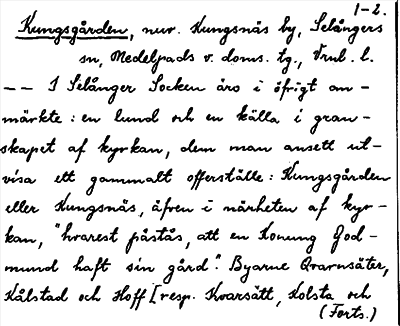 1-2.
Kungsgården, nuv. Kungsnäs by, Selångers
sn, Medelpads v. doms. tg., Vrnl. l.
-- I Selånger Socken äro i öfrigt an-
märkte: en lund och en källa i gran-
skapet af kyrkan, dem man ansett ut-
visa ett gammalt offerställe: Kungsgården
eller Kungsnäs, äfven i närheten af kyr-
kan, "hvarest påstås, att en Konung God-
mund haft sin gård". Byarne Qvarnsäter,
Kålstad och Hoff [resp. Kvarsätt, Kolsta och
(Forts.)